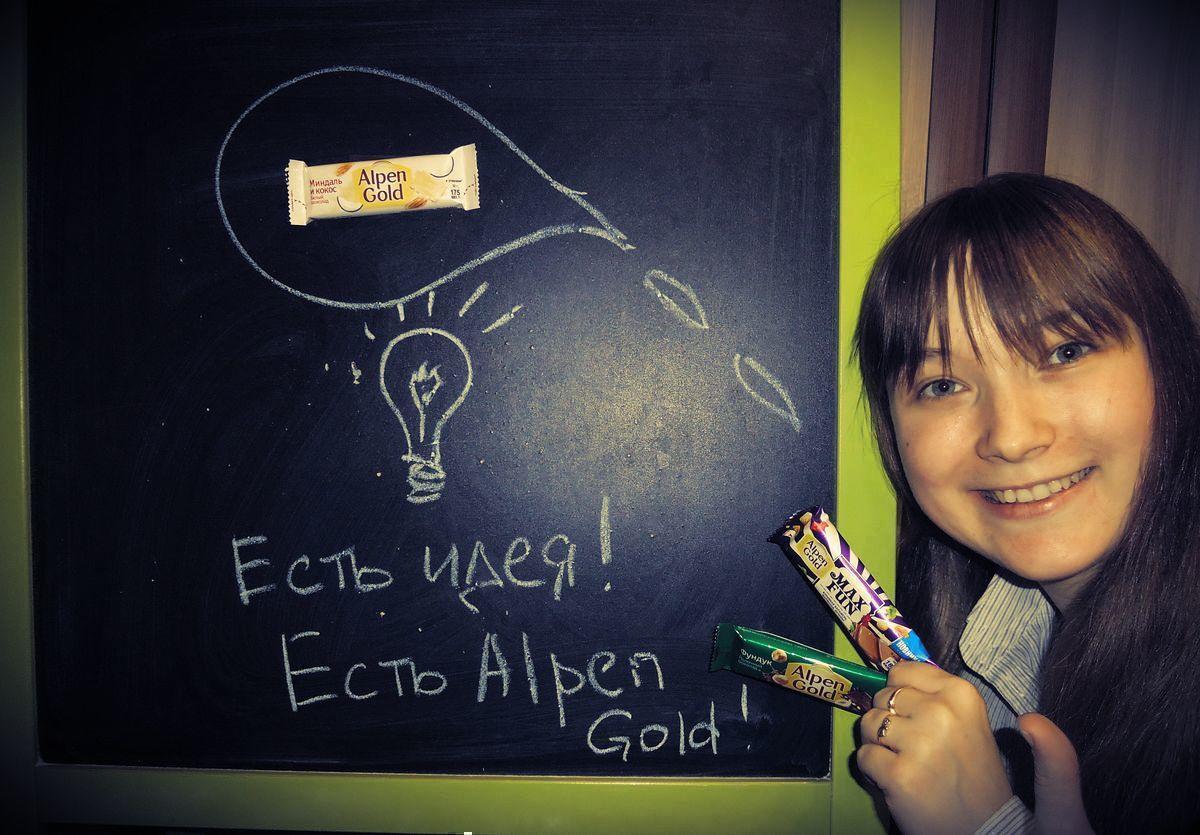 Миндаль
и кокос
Alpen
Gold
175
Есть идея!
Есть Alpen
Gold!
Alpen
Gold
MAX
FUN
Фундук
Alpen
Gold